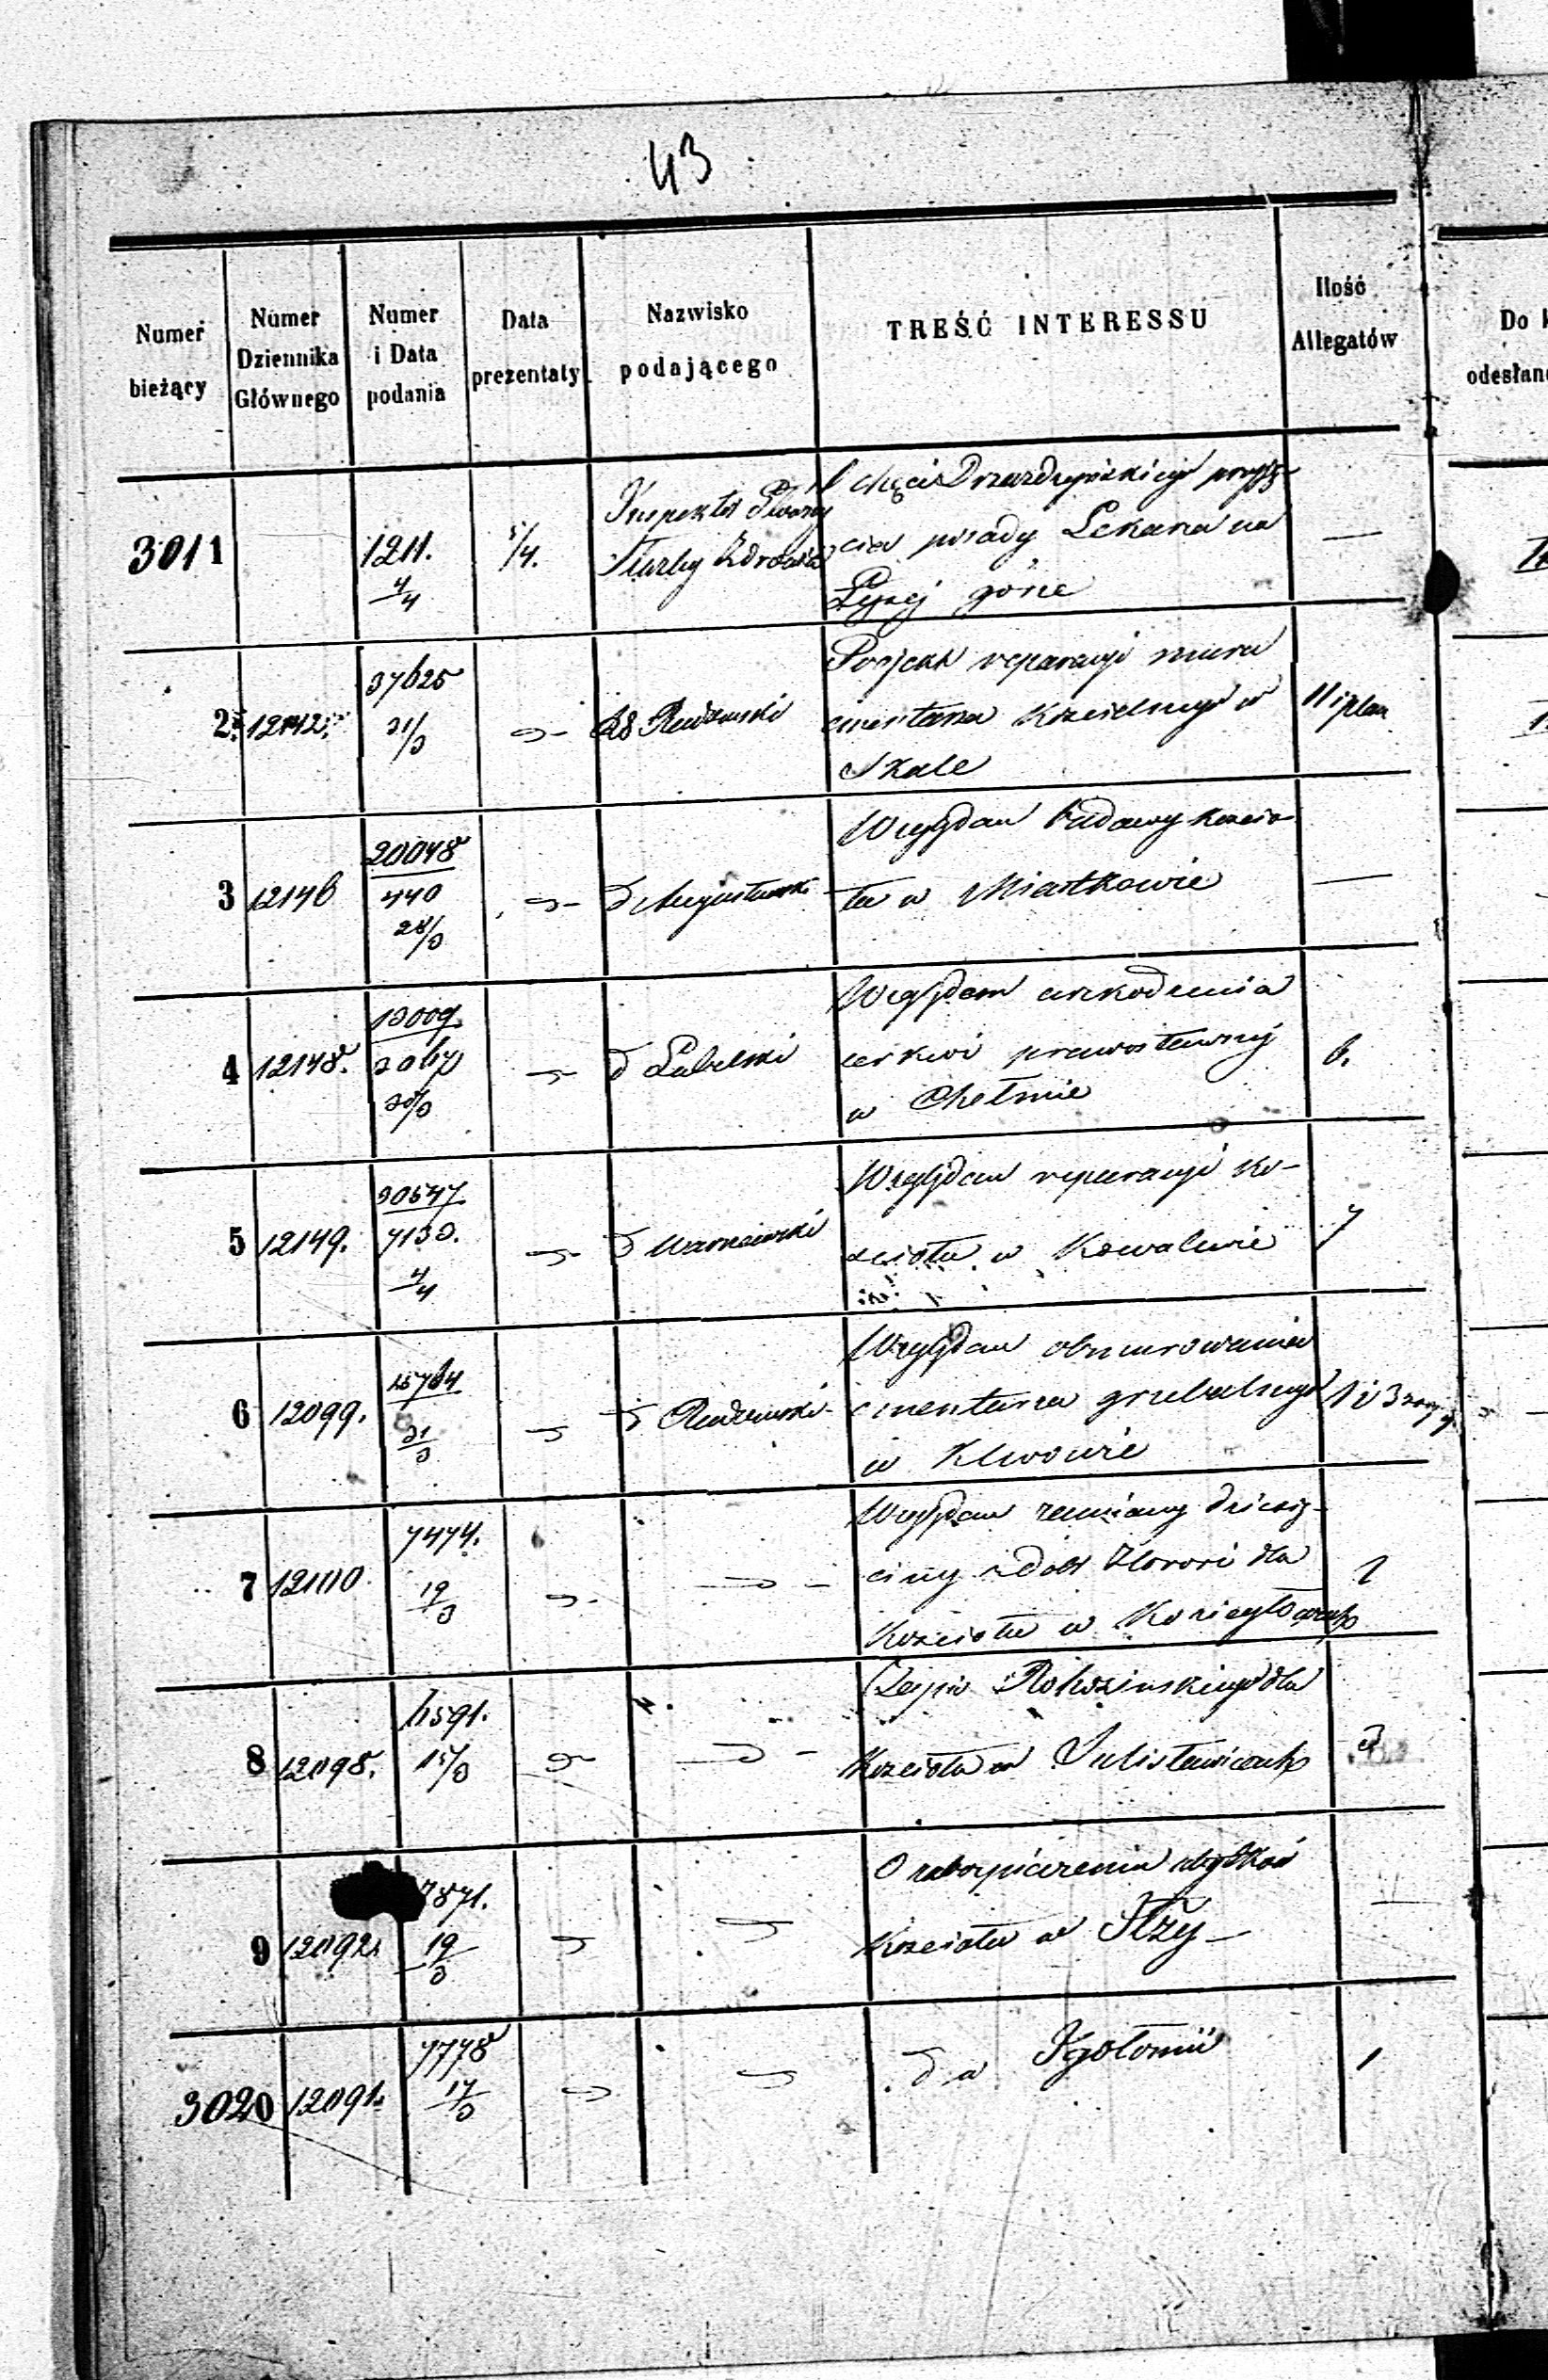 43
Numer bieżący
Numer Dziennika Głównego
Numer i Data podania
Data prezentaty
Nazwisko podającego
TREŚĆ INTERESSU
Ilość Allegatów
Do
odesłan
3011
1211.
4/4
5/4.
Inspektor Główny
Służby Zdrowia
O chęci przyję-
cia posady Lekarza na
Łysej górze
—
2.
12142.
37625
31/3
Radomski
Projekt reparacyi muru
cmentarza kościelnego w
Skale
11 i plan
3
12146
20048
440
28/3
d Augustowski
Względem budowy kościo-
ła w Miastkowie
—
4
12148.
13009.
30/3
d Lubelski
Względem uszkodzenia
cerkwi prawosławnej
w Chełmie
6.
5
12149.
30547.
7133.
4/4
d Warszawski
Względem reparacyi ko-
ścioła w Kowalewie
7
6
12099.
15764
31/3
d Radomski
Względem obmurowania
cmentarza grzebalnego
w Klwowie
1 i 3
7
12100.
7474.
19/3
Względem zamiany dziesię-
ciny z dóbr dla
Kościoła w Koziegłowach
1
8
12098.
6591.
15/3
Zapis dla
Kościoła w Sulisławicach
3
9
12092.
7871.
19/3
O zabezpieczeniu
Kościoła w Iłży
—
3020
12091.
7778
17/3
d w Igołomii
1